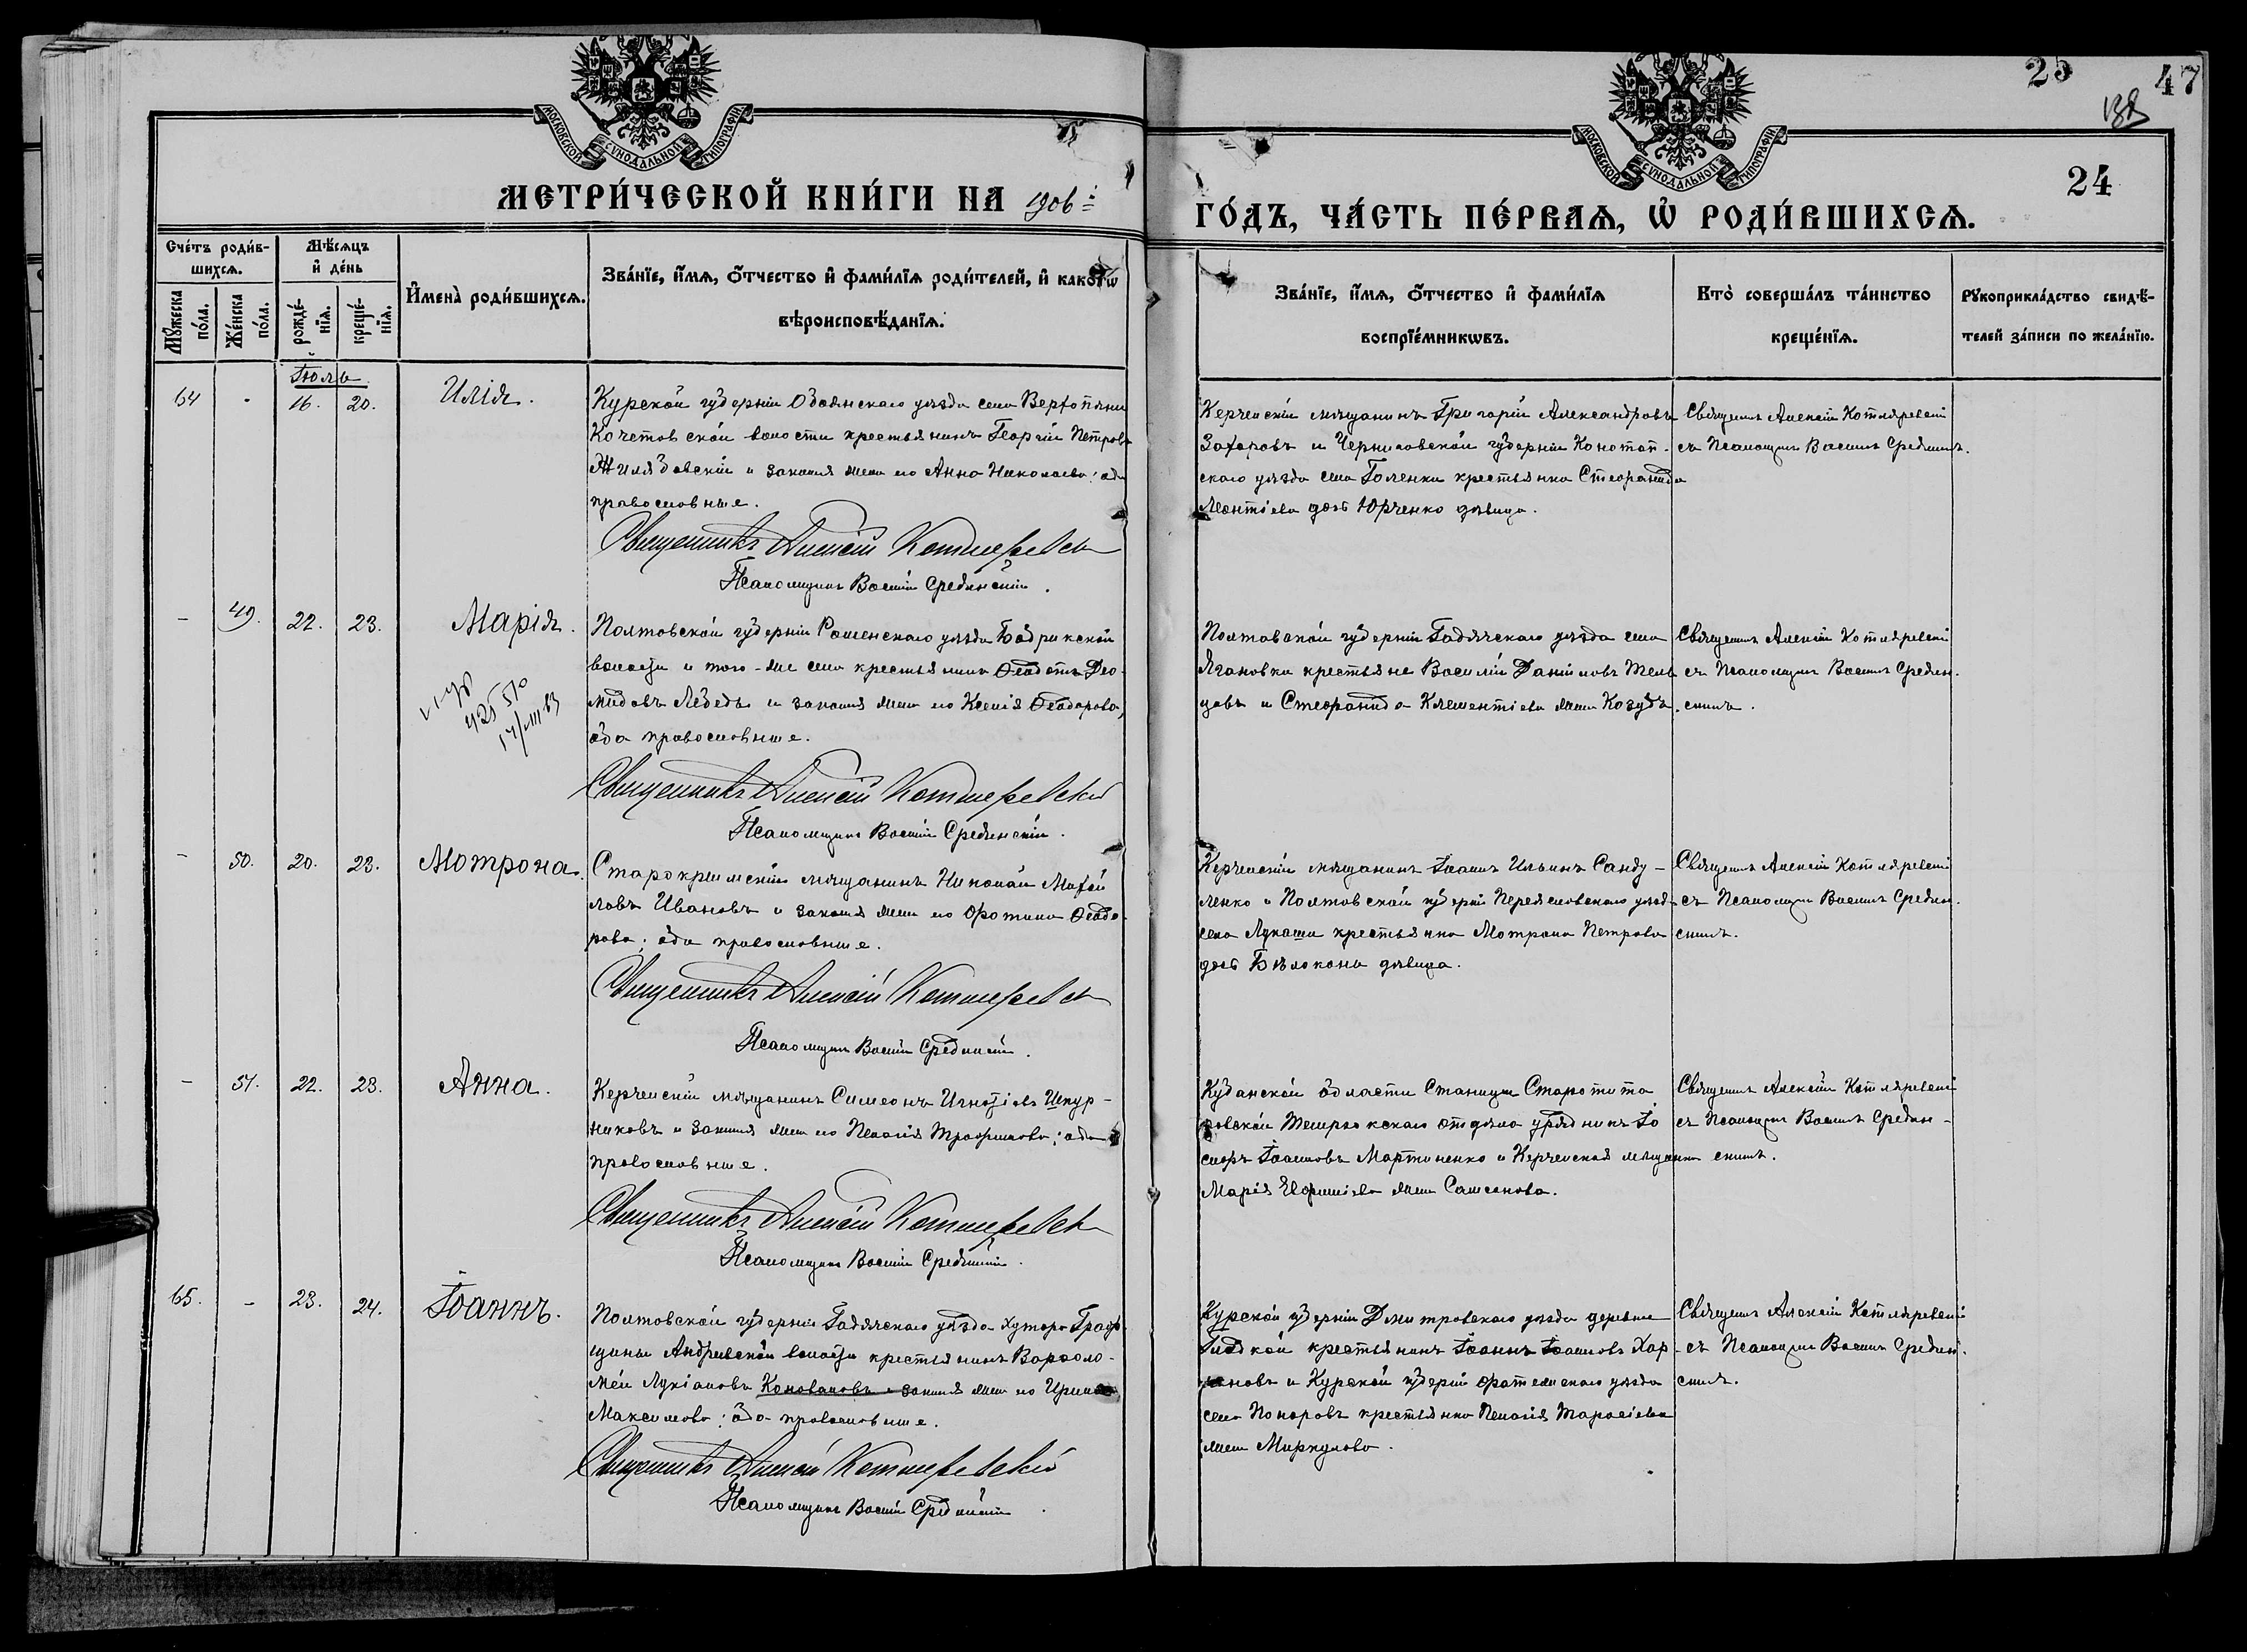 25 47
24
МОСКОВСКОЙ СѴНОДАЛЬНОЙ ТИПОГРАФІИ
МОСКОВСКОЙ СѴНОДАЛЬНОЙ ТИПОГРАФІИ
МЕТРИ́ЧЕСКОЙ КНИ́ГИ НА 1906
ГО́ДЪ, ЧА́СТЬ ПЕ́РВАѦ, Ѽ РОДИ́ВШИХСѦ.
Сче́тъ роди́в-
шихсѧ.
Мꙋ́жеска по́ла.
Же́нска по́ла.
Мѣ́сѧцъ
и҆ де́нь
рожде́-
нїѧ.
креще́-
нїѧ.
И҆мена̀ роди́вшихсѧ.
Зва́нїе, и҆́мѧ, ѻ҆́тчество и҆ фами́лїѧ роди́телей, и҆ како́гѡ
вѣроисповѣ́данїѧ.
Зва́нїе, и҆́мѧ, ѻ҆́тчество и҆ фами́лїѧ
воспрїе́мникѡвъ.
Кто̀ соверша́лъ та́инство
креще́нїѧ.
Рꙋкоприкла́дство свидѣ́-
телей за́писи по жела́нїю.
Іюль
64 - 16. 20. Илія.
Курской губерніи Обоянскаго уѣзда села Верхопѣни
Кочетовской волости крестьянинъ Георгій Петровъ
Жилядовскій и законная жена его Анна Николаева: оба
православные.
Священникъ Алексій Котляревскій
Псаломщикъ Василій Срединскій.
Керченскій мѣщанинъ Григорій Александровъ
Захаровъ и Черниговской губерніи Конотоп-
скаго уѣзда села Голенки крестьянка Стефанида
Леонтіева дочь Юрченко дѣвица.
Священникъ Алексій Котляревскій
съ Псаломщик. Василіемъ Срединск.
- 49. 22. 23. Марія.
Полтавской губерніи Роменскаго уѣзда Бобрикской
волости и того-же села крестьянинъ Ѳеодотъ Дио-
мидовъ Лебедь и законная жена его Ксенія Ѳеодорова,
оба православные.
Священникъ Алексій Котляревскій
Псаломщикъ Василій Срединскій.
Полтавской губерніи Гадячскаго уѣзда села
крестьяне Василій Даніиловъ
и Стефанида Климентіева жена
Священникъ Алексій Котляревскій
съ Псаломщик. Василіемъ Средин-
скимъ.
- 50. 20. 23. Мотрона.
Старокрымскій мѣщанинъ Николай Михай-
ловъ Ивановъ и законная жена его Фотина Ѳеодо-
рова; оба православные.
Священникъ Алексій Котляревскій
Псаломщикъ Василій Срединскій.
Керченскій мѣщанинъ Іоаннъ Ильинъ Санду-
ленко и Полтавской губерніи Переяславскаго уѣзда
села Лукаши крестьянка Мотрона Петрова
дочь Бѣлоконь дѣвица.
Священникъ Алексій Котляревскій
съ Псаломщик. Василіемъ Средин-
скимъ.
- 51. 22. 23. Анна.
Керченскій мѣщанинъ Симеонъ Игнатіевъ Шкур-
никовъ и законная жена его Пелагія Трофимова; оба
православные.
Священникъ Алексій Котляревскій
Псаломщикъ Василій Срединскій.
Кубанской области Станицы Старотита-
ровской Темрюкскаго отдѣла урядникъ Іо-
сифъ Іоанновъ Мартиненко и Керченская мѣщанка
Марія Евфиміева жена Самсонова.
Священникъ Алексій Котляревскій
съ Псаломщик. Василіемъ Средин-
скимъ.
65. - 23. 24. Іоаннъ.
Полтавской губерніи Гадячскаго уѣзда хутора
волости крестьянинъ Варѳоло-
мей Лукіановъ Коноваловъ и законная жена его Ирина
Максимова: оба православные.
Священникъ Алексій Котляревскій
Псаломщикъ Василій Срединскій
Курской губерніи Дмитровскаго уѣзда деревни
крестьянинъ Іоаннъ Іоанновъ Хар-
и Курской губерніи Фатежскаго уѣзда
села Поноровъ крестьянка Пелагія Тарасіева
жена Миркулова.
Священникъ Алексій Котляревскій
съ Псаломщик. Василіемъ Средин-
скимъ.